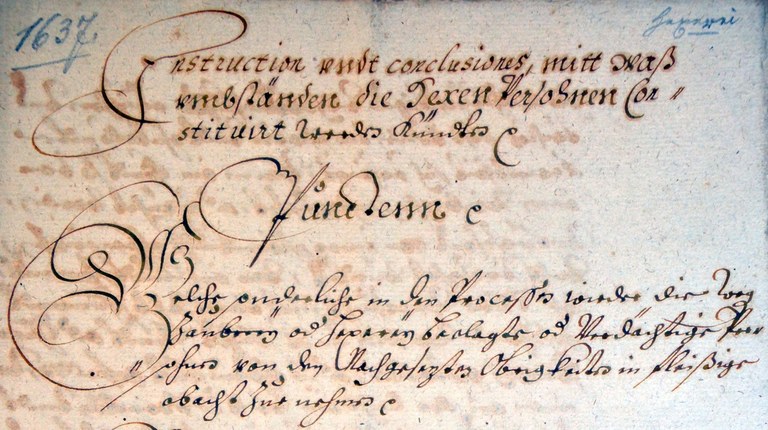 1637.
Hexerei
Instruction undt conclusiones, mitt waß
umbständen die Hexen Persohnen Con„
stituirt werden Kündten
Puncktenn
Welche sonderliche in den Processen wieder die weg
Zauberey od Hexerey beclagte od Verdächtige Per„
„sohnen von den Nachgesezten Obrigkeiten in fleißige
obacht Zue nehmen